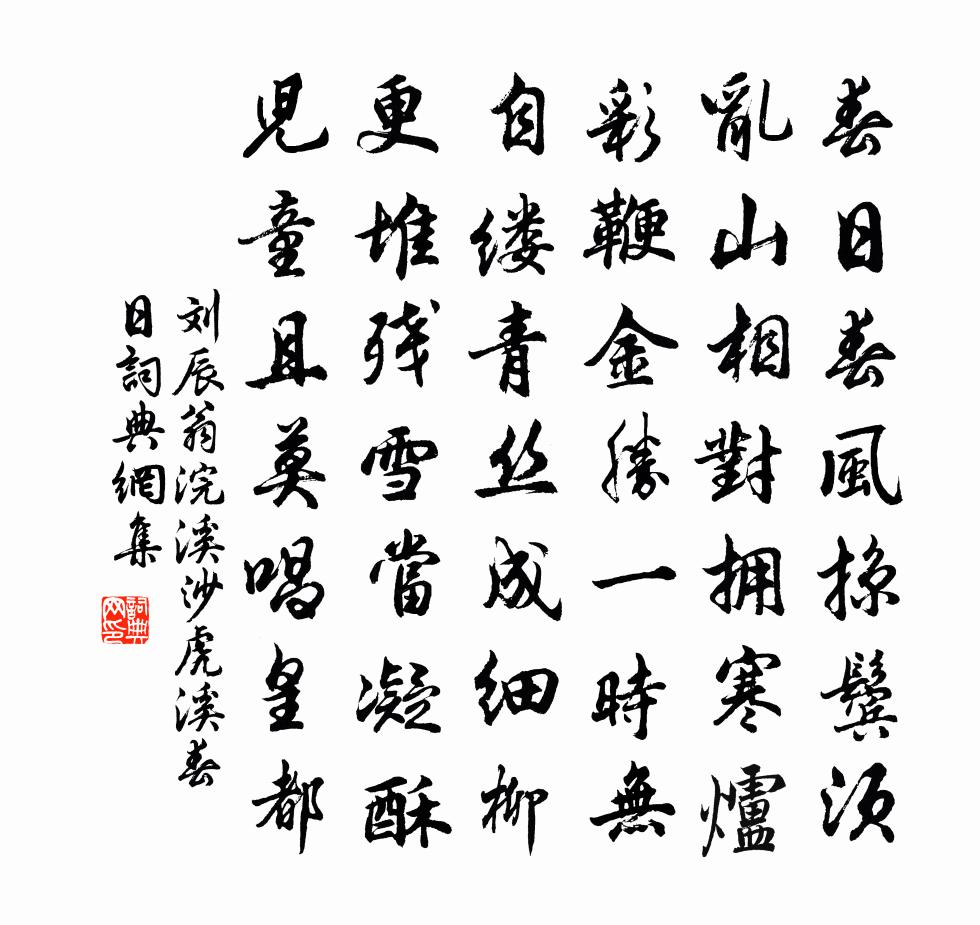 春日春風掠鬓须
亂山相對拥寒爐
彩鞭金勝一時無
自缕青丝成细柳
更堆残雪當凝酥
児童且莫唱皇都
刘辰翁浣溪沙虎溪春
日詞典網集
詞典网印